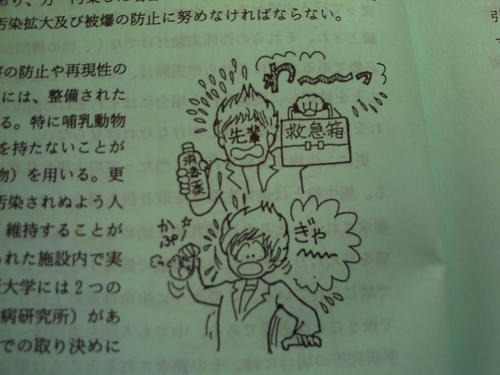 汚染拡大及び被爆の防止に努めなければならない。
の防止や再現性の
には、整備された
る。特に哺乳動物
を持たないことが
物）を用いる。更
汚染されぬよう人
維持することが
られた施設内で実
大学には２つの
病研究所）があ
での取り決めに
先輩
救急箱
消毒薬
かぷ
ぎゃー
引